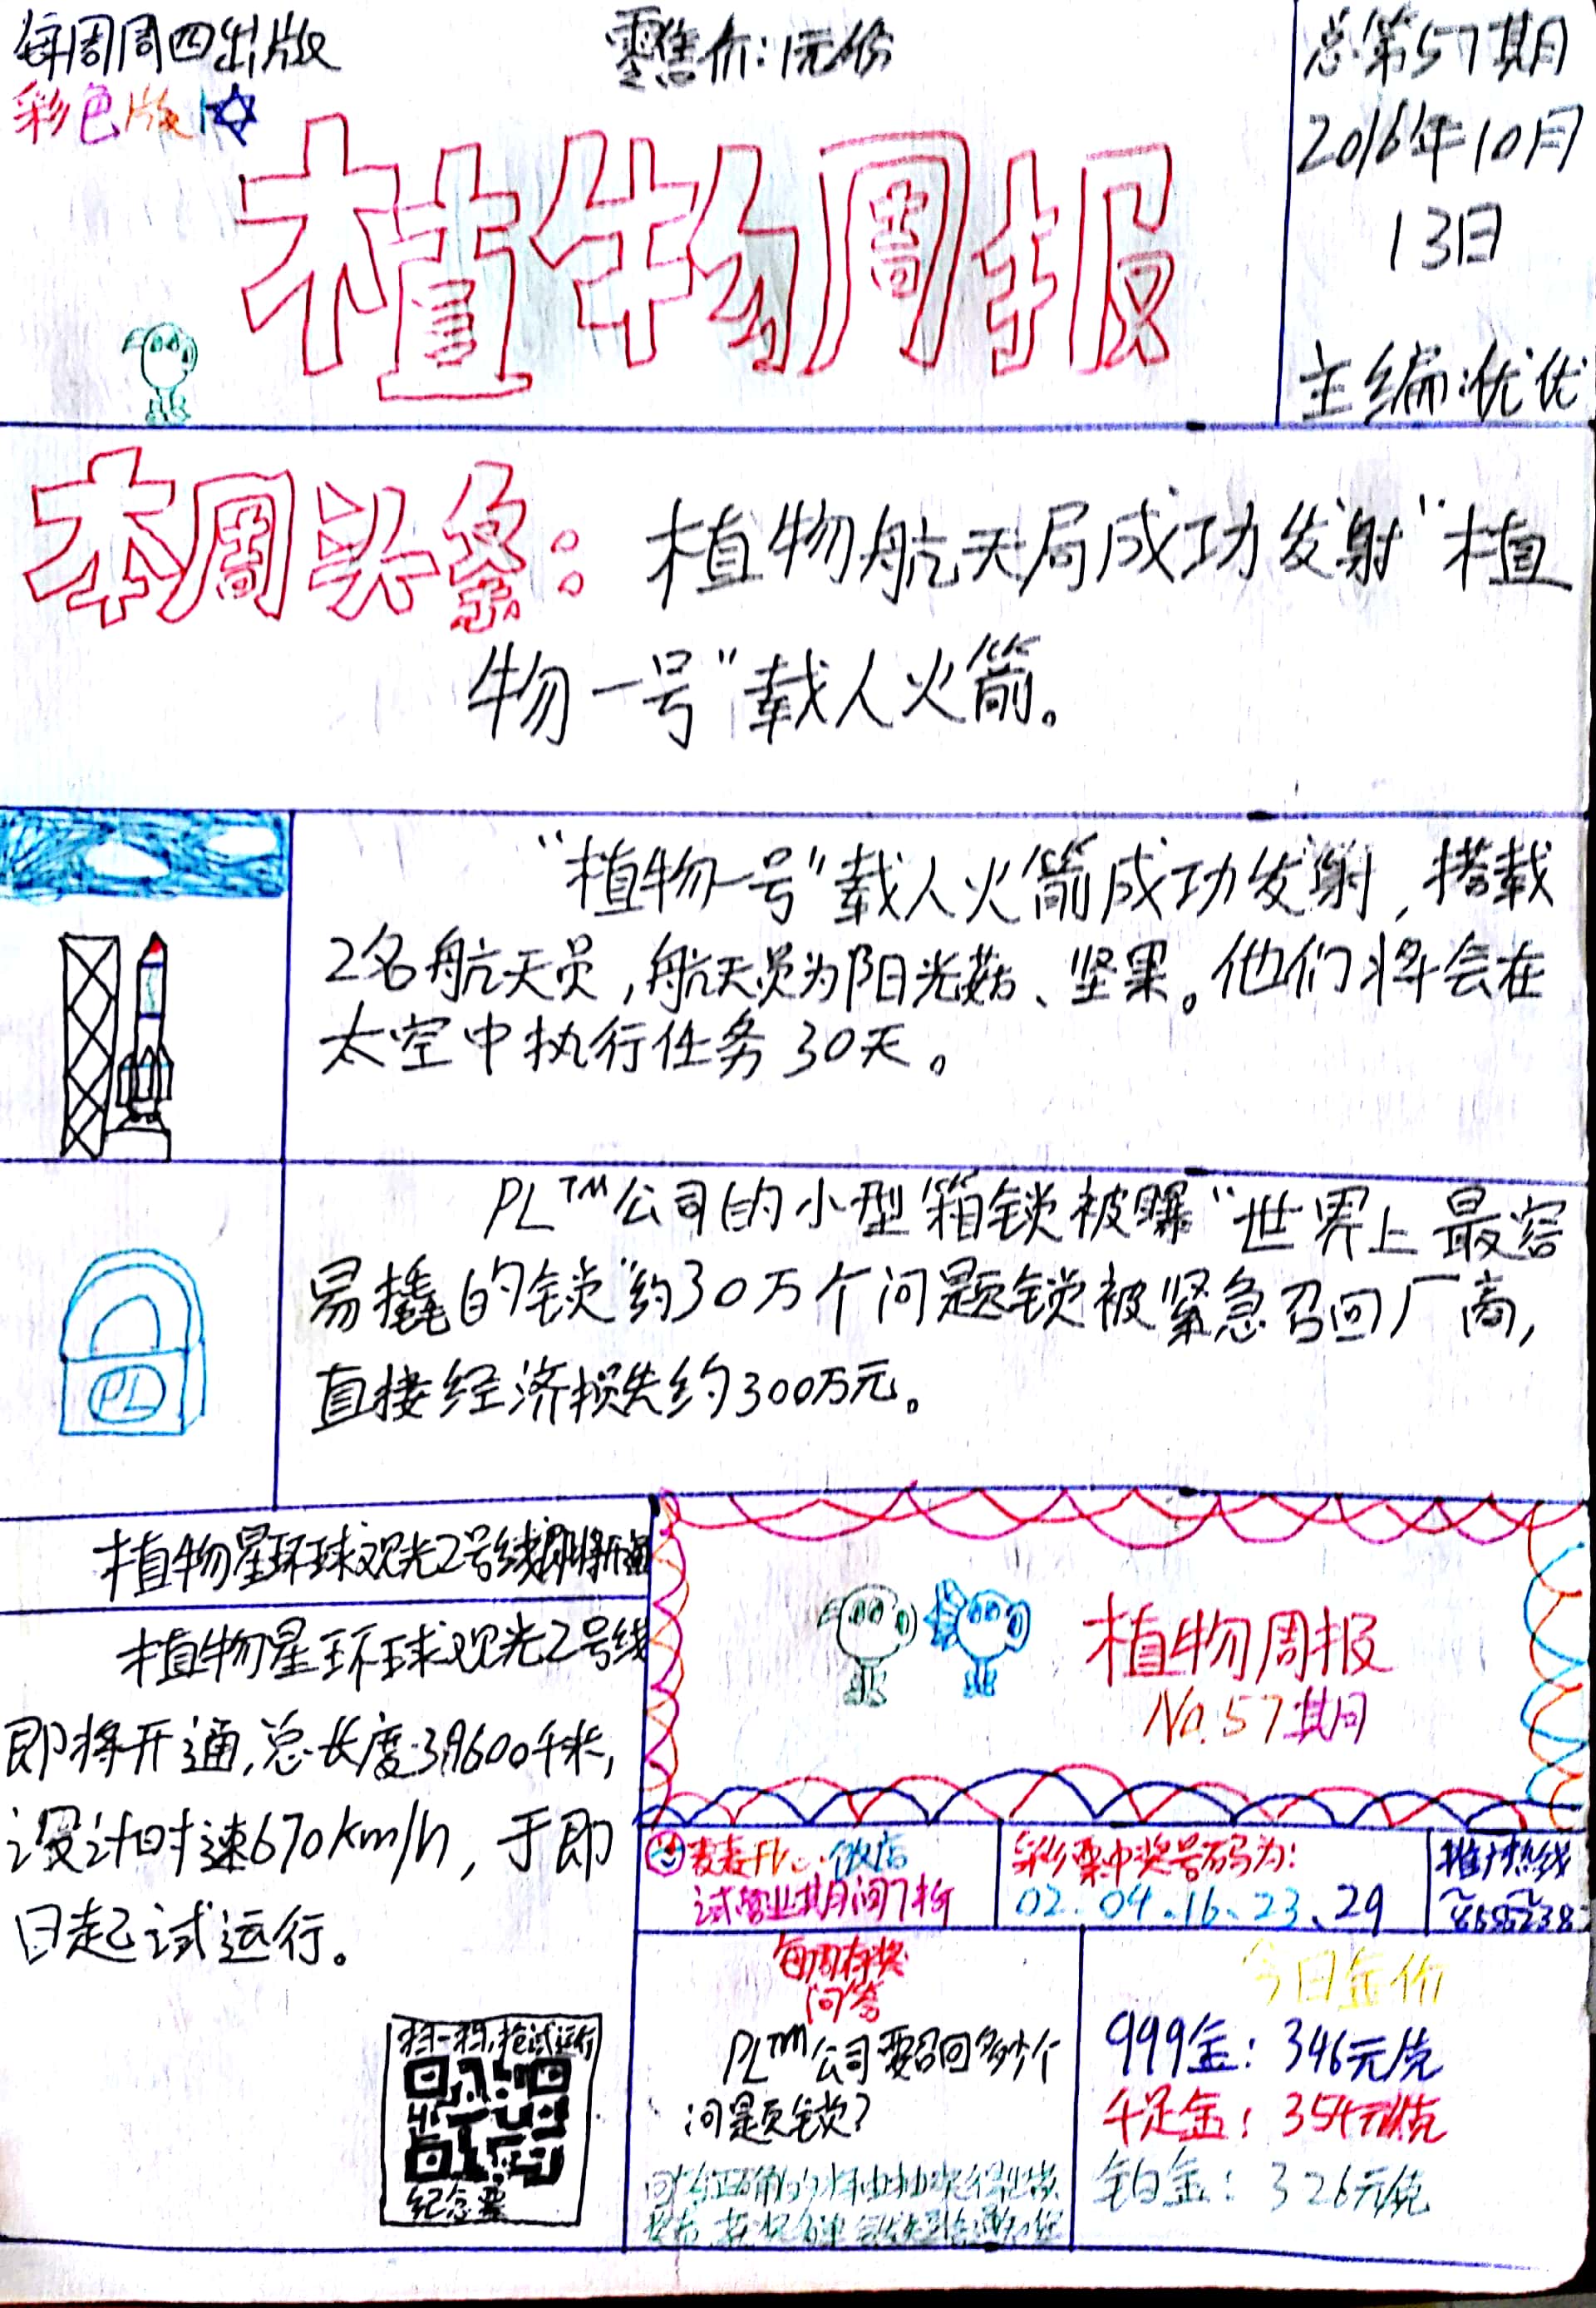 每周周四出版
零售价:1元/份
彩色版
总第57期
2016年10月
13日
主编:优优
植物周报
本周头条:
植物航天局成功发射“植
物一号”载人火箭。
“植物一号”载人火箭成功发射,搭载
2名航天员,航天员为阳光菇、坚果。他们将会在
太空中执行任务30天。
PL™公司的小型箱锁被曝“世界上最容
易撬的锁”约30万个问题锁被紧急召回厂商,
直接经济损失约300万元。
PL
植物星环球观光2号线即将开通
植物星环球观光2号线
即将开通,总长度39600千米,
设计时速670km/h,于即
日起试运行。
扫一扫,抢试运行
纪念票
植物周报
No.57期
饭店
试营业期间7折
彩票中奖号码为:
02、04、16、23、29
推广热线
每周有奖
问答
PL™公司要召回多少个
问题锁?
今日金价
999金:346元/克
千足金:354元/克
铂金:326元/克